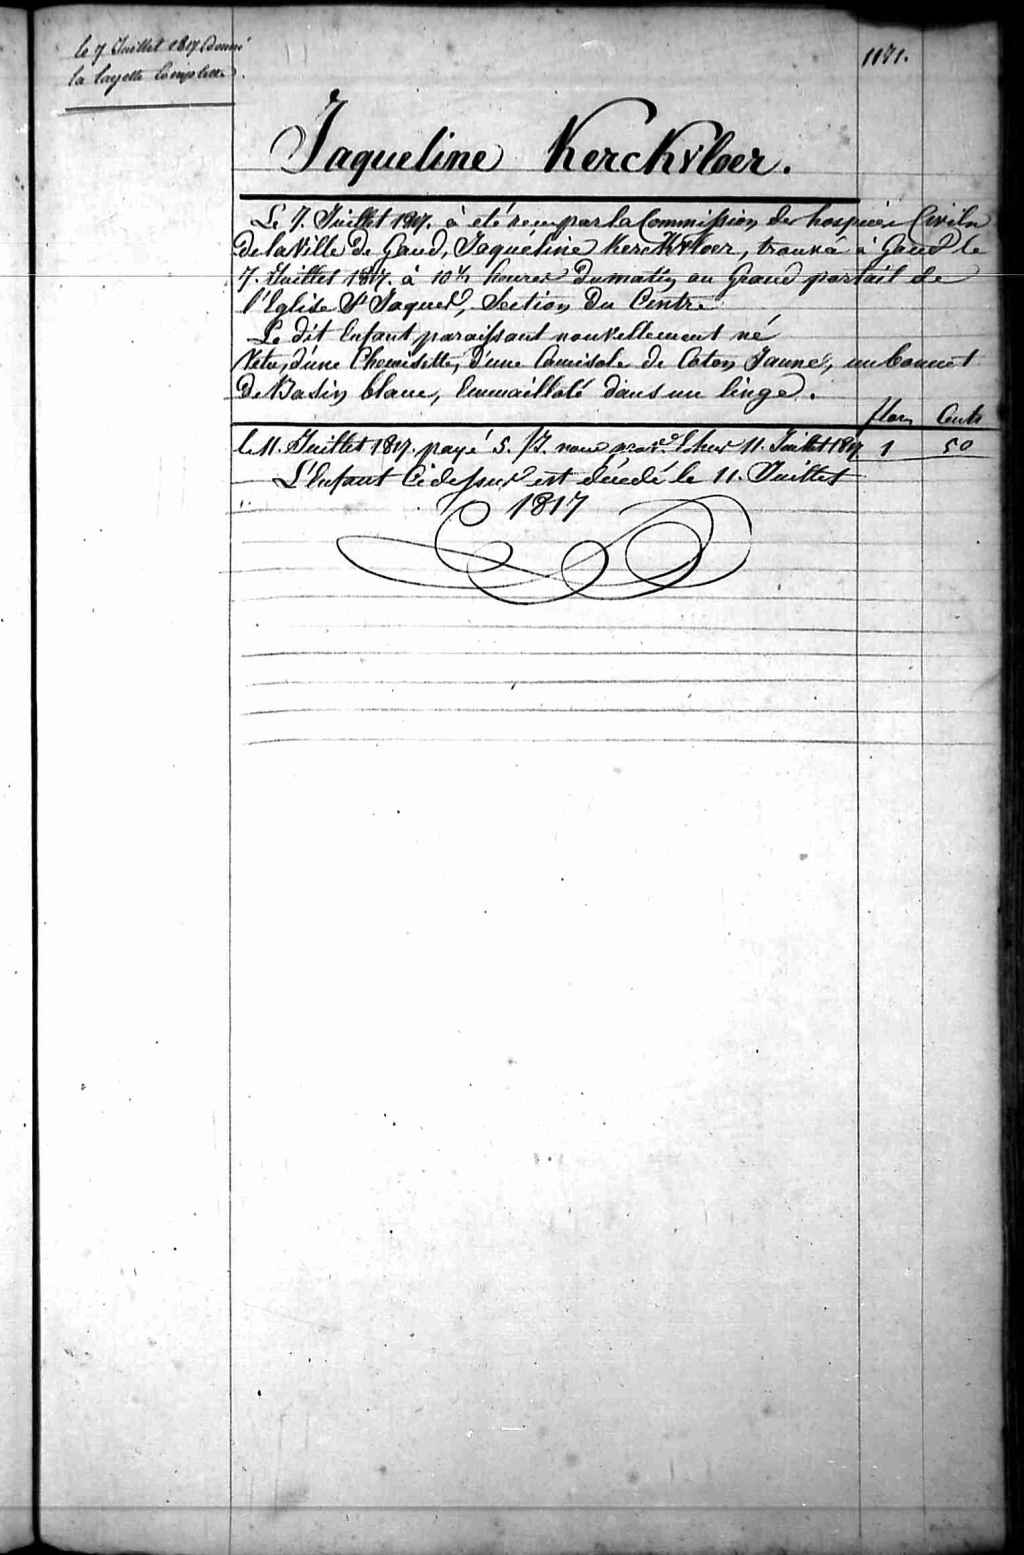 le 7 Juillet 1817 donné
la layette Complette.
1171.
Jaqueline Kerckvloer.
Le 7. Juillet 1817. à eté recu par la Commission des hospices Civils
de la Ville de Gand, Jaqueline Kerckvloer, trouvé à Gand le
7. Juillet 1817. à 10½ heures du matin au Grand portail de
l'Eglise St Jaques, Section du Centre
Le dit Enfant paraissant nouvellement né
Vetu, d'une Chemisette, d'une Camisole de Coton Jaune, un bonnet
de Basin blanc, Emmailloté dans un linge.
flor. Cents
le 11. Juillet 1817. payé 11. Juillet 1817 1 50
L'Enfant Cidessus est décedé le 11. Juillet
1817